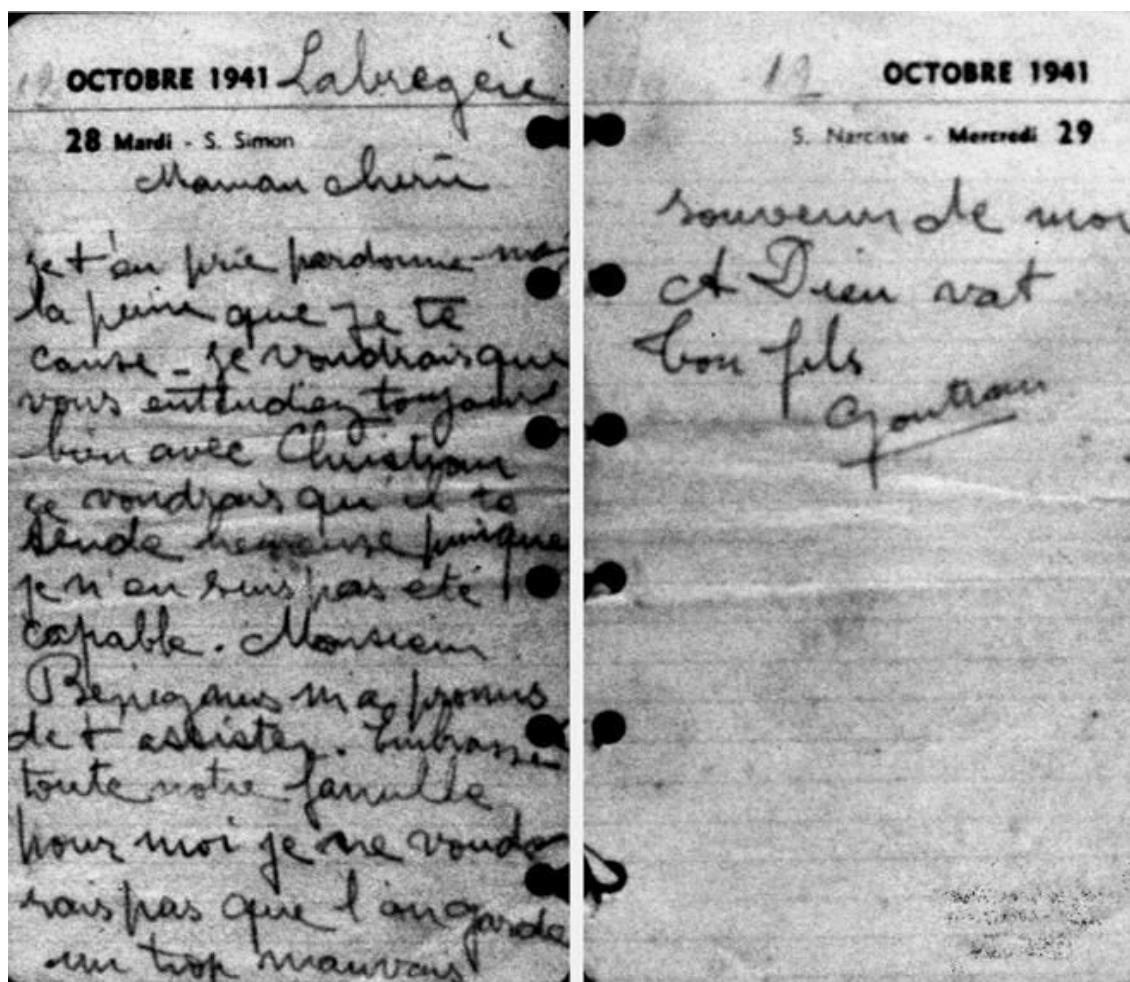 12 OCTOBRE 1941 Labregère
28 Mardi - S. Simon
Maman chérie
je t'en prie pardonne-moi
la peine que je te
cause - je voudrais que
vous entendiez toujours
bien avec Christian
je voudrais qu'il te
rende heureuse puisque
je n'en suis pas été
capable. Monsieur
m'a promis
de t'assister. Embrasse
toute notre famille
pour moi je ne voud
rais pas que l'on garde
un trop mauvais
12 OCTOBRE 1941
S. Narcisse - Mercredi 29
souvenir de moi
A Dieu vat
ton fils
Gontran